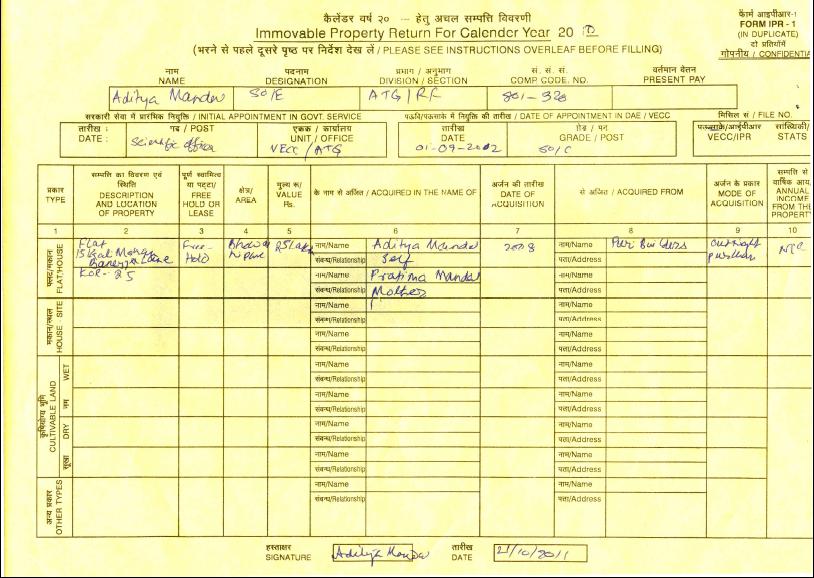 कैलेंडर वर्ष २० --- हेतु अचल सम्पत्ति विवरणी
Immovable Property Return For Calender Year 20 10
(भरने से पहले दूसरे पृष्ठ पर निर्देश देख लें / PLEASE SEE INSTRUCTIONS OVERLEAF BEFORE FILLING)
फॅार्म आइपीआर-1
FORM IPR - 1
(IN DUPLICATE)
दो प्रतियोंमें
गोपनीय / CONFIDENTIA
नाम
NAME
पदनाम
DESIGNATION
प्रभाग / अनुभाग
DIVISION / SECTION
सं. स. सं.
COMP. CODE. NO.
वर्तमान वेतन
PRESENT PAY
Aditya Mandal SO/E ATG/RF 801-328
सरकारी सेवा में प्रारंभिक नियुक्ति / INITIAL APPOINTMENT IN GOVT. SERVICE
की तारीख / DATE OF APPOINTMENT IN DAE / VECC
मिसिल सं / FILE NO.
तारीख :
DATE :
पद / POST
Scientific Officer
एकक / कार्यालय
UNIT / OFFICE
VECC / ATG
तारीख
DATE
01-09-2002
ग्रेड / पद
GRADE / POST
SO/C
VECC/IPR
सांख्यिकी/
STATS
प्रकार
TYPE
सम्पत्ति का विवरण एवं
स्थिति
DESCRIPTION
AND LOCATION
OF PROPERTY
पूर्ण स्वामित्व
या पट्टा/
FREE
HOLD OR
LEASE
क्षेत्र/
AREA
मूल्य रू/
VALUE
Rs.
के नाम से अर्जित / ACQUIRED IN THE NAME OF
अर्जन की तारीख
DATE OF
ACQUISITION
से अर्जित / ACQUIRED FROM
अर्जन के प्रकार
MODE OF
ACQUISITION
सम्पत्ति से
वार्षिक आय/
ANNUAL
INCOME
FROM THE
PROPERTY
1 2 3 4 5 6 7 8 9 10
फ्लैट/मकान
FLAT/HOUSE
Flat
Banerjee Lane
KOL-25
Free-
Hold
25 Lakh
नाम/Name Aditya Mandal
संबन्ध/Relationship Self
नाम/Name Pratima Mandal
संबन्ध/Relationship Mother
2008
नाम/Name Puri Builders
पता/Address
नाम/Name
पता/Address
outright
purchase
NIL
मकान/स्थल
HOUSE SITE
नाम/Name
संबन्ध/Relationship
नाम/Name
संबन्ध/Relationship
नाम/Name
पता/Address
नाम/Name
पता/Address
कृषियोग्य भूमि
CULTIVABLE LAND
नम WET
नाम/Name
संबन्ध/Relationship
नाम/Name
संबन्ध/Relationship
नाम/Name
पता/Address
नाम/Name
पता/Address
सूखा DRY
नाम/Name
संबन्ध/Relationship
नाम/Name
संबन्ध/Relationship
नाम/Name
पता/Address
नाम/Name
पता/Address
अन्य प्रकार
OTHER TYPES
नाम/Name
संबन्ध/Relationship
नाम/Name
पता/Address
हस्ताक्षर
SIGNATURE Aditya Mandal
तारीख
DATE 21/10/2011